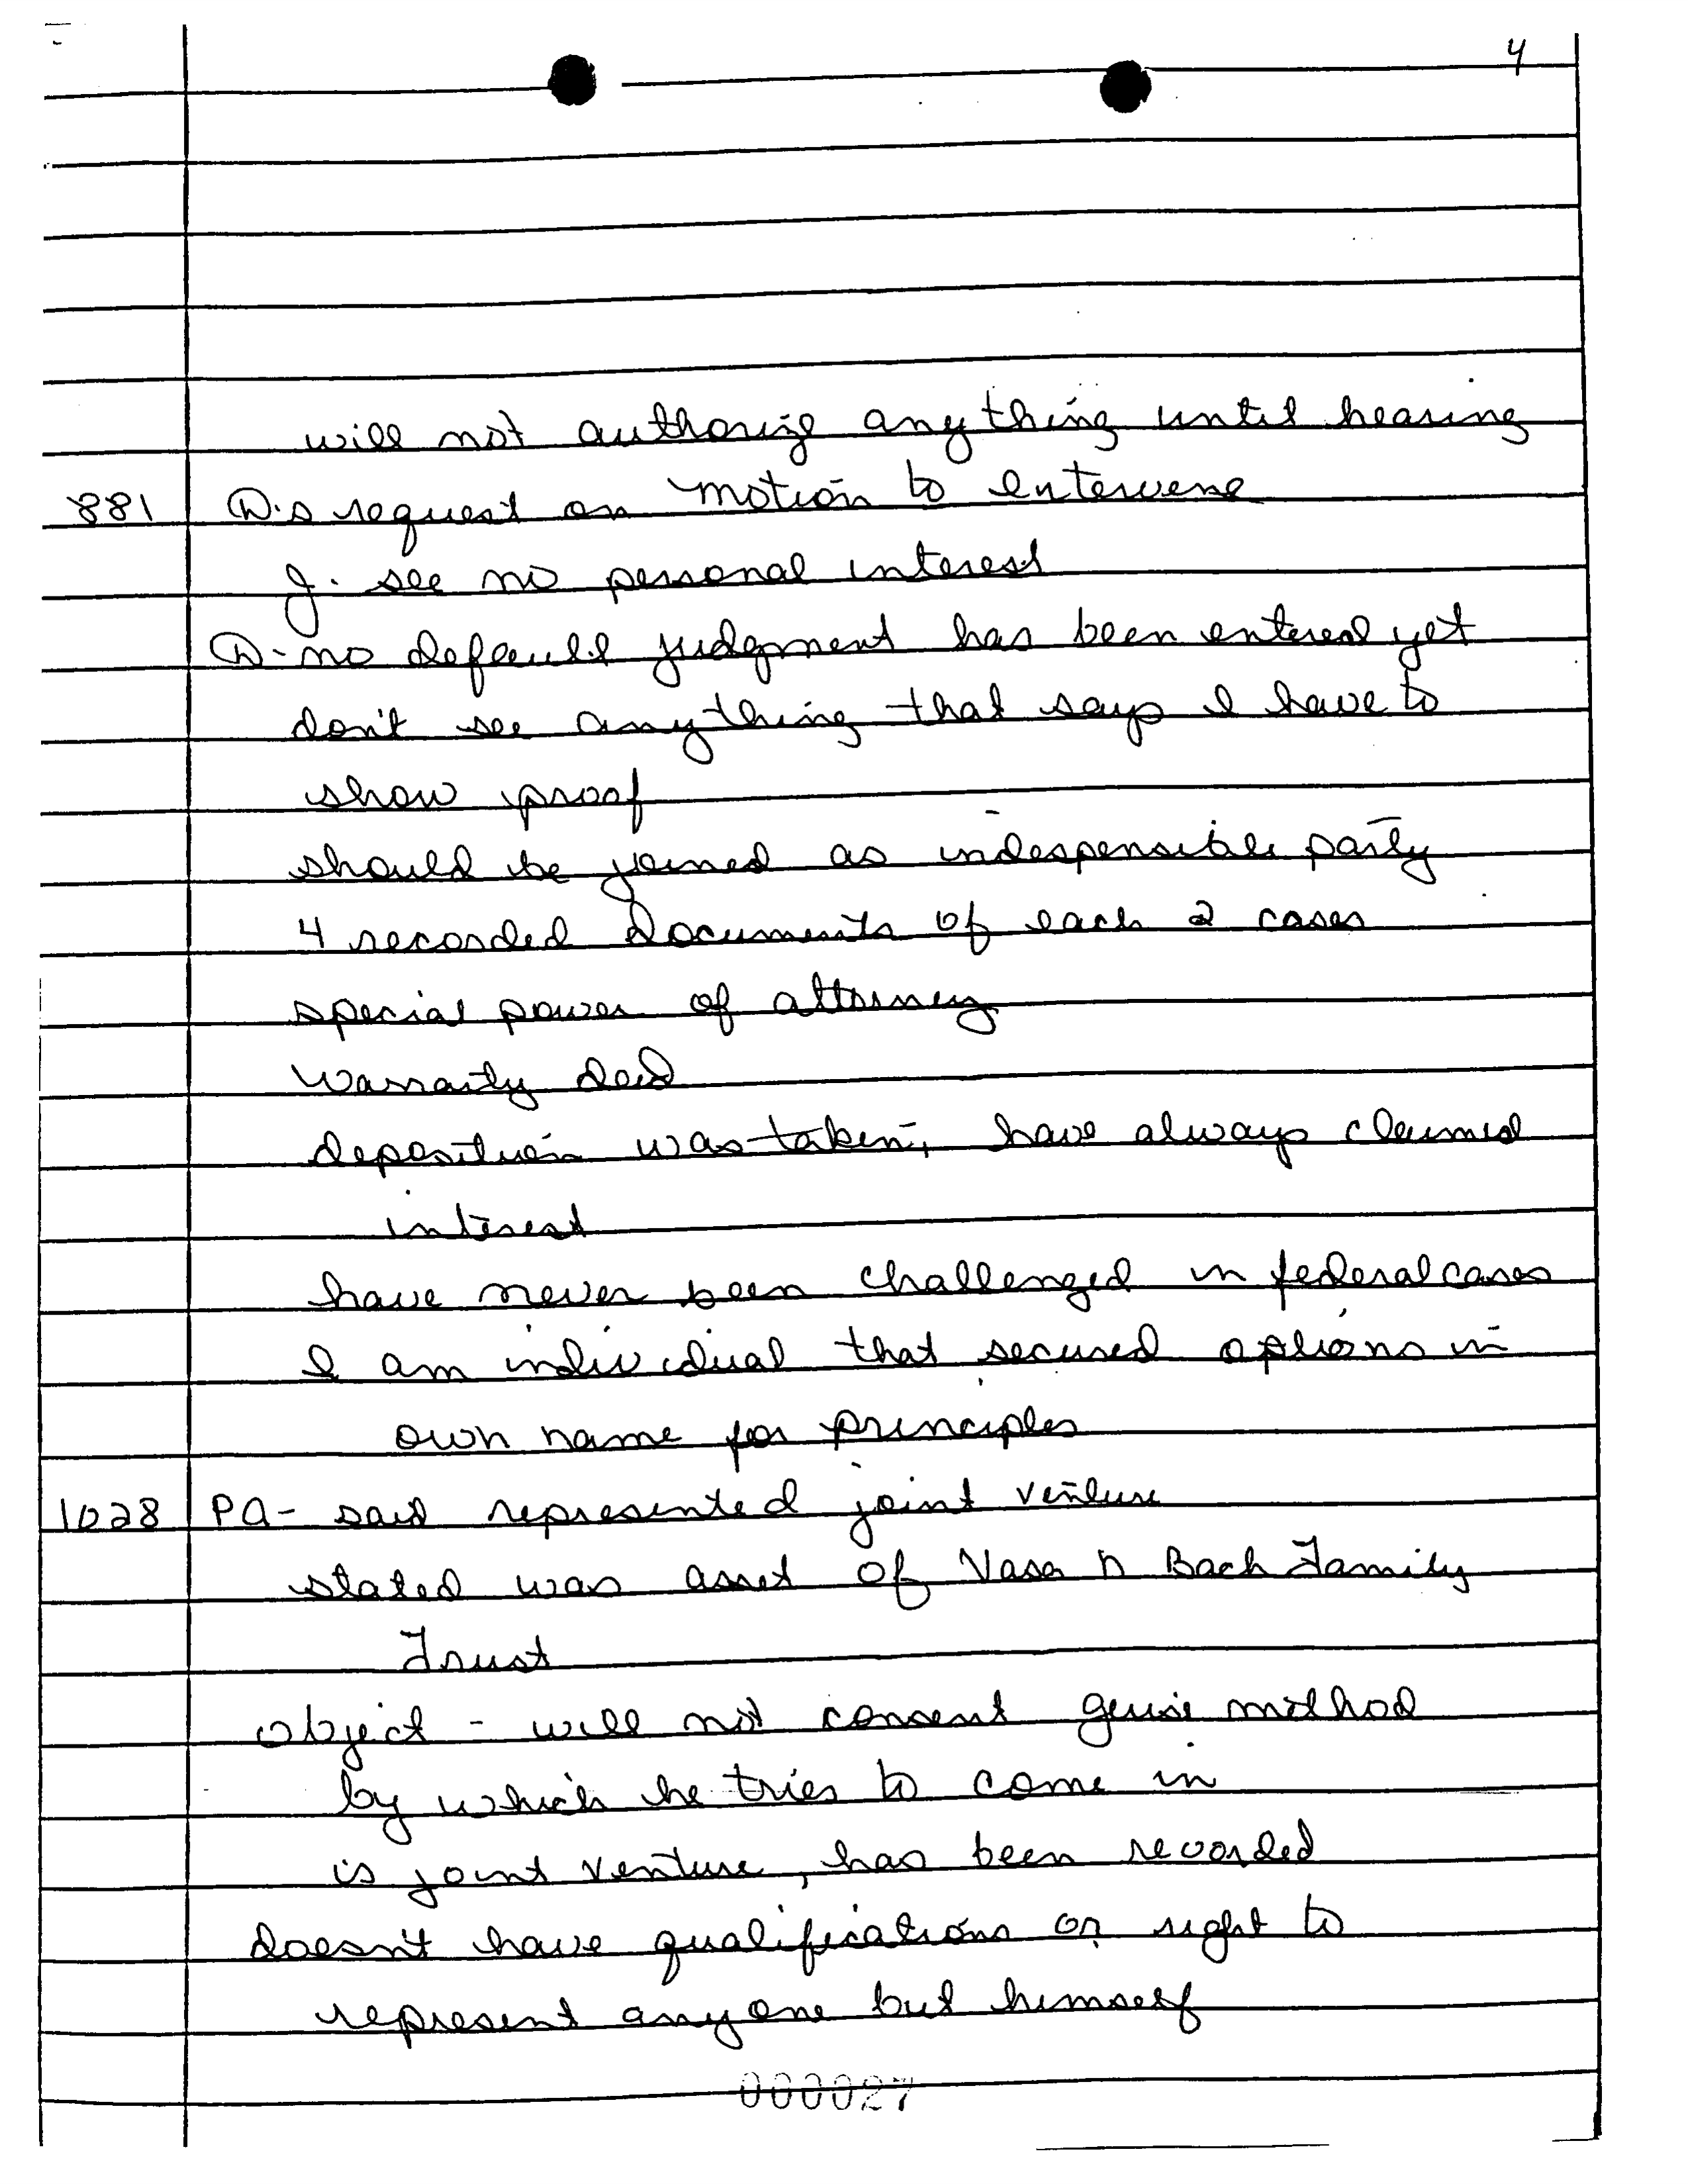 4
will not authorize anything until hearing
881 D's request on motion to entervene
J. see no personal interest
D- no default judgment has been entered yet
don't see anything that says I have to
show proof
should be joined as indespensible party
4 recorded documents of each 2 cases
special power of attorney
Warranty deed
deposition was taken, have always claimed
interest
have never been challenged in federal cases
I am individual that secured options in
own name for principles
1028 PA- said represented joint venture
stated was asset of Vasa N Bach Family
Trust
object - will not consent method
by which he tries to come in
is joint venture, has been recorded
doesn't have qualifications or right to
represent anyone but himself
000027